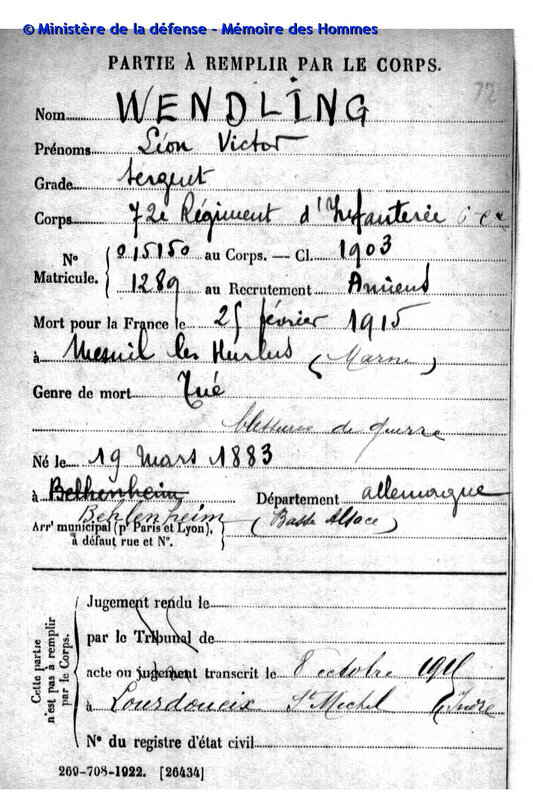 © Ministère de la défense - Mémoire des Hommes
PARTIE À REMPLIR PAR LE CORPS.
72
Nom WENDLING
Prénoms Léon Victor
Grade Sergent
Corps 72e Régiment d'Infanterie
N° Matricule. 015150 au Corps. — Cl. 1903
1289 au Recrutement Amiens
Mort pour la France le 25 février 1915
à Mesnil les Hurlus (Marne)
Genre de mort Tué
blessures de guerre
Né le 19 Mars 1883
à Belhenheim Département allemagne
Behlenheim (Basse Alsace)
Arrt municipal (pr Paris et Lyon),
à défaut rue et N°.
Cette partie n'est pas à remplir par le Corps.
Jugement rendu le
par le Tribunal de
acte ou jugement transcrit le 8 octobre 1915
à Lourdoueix St Michel (Indre
N° du registre d'état civil
269-708-1922. [26434]